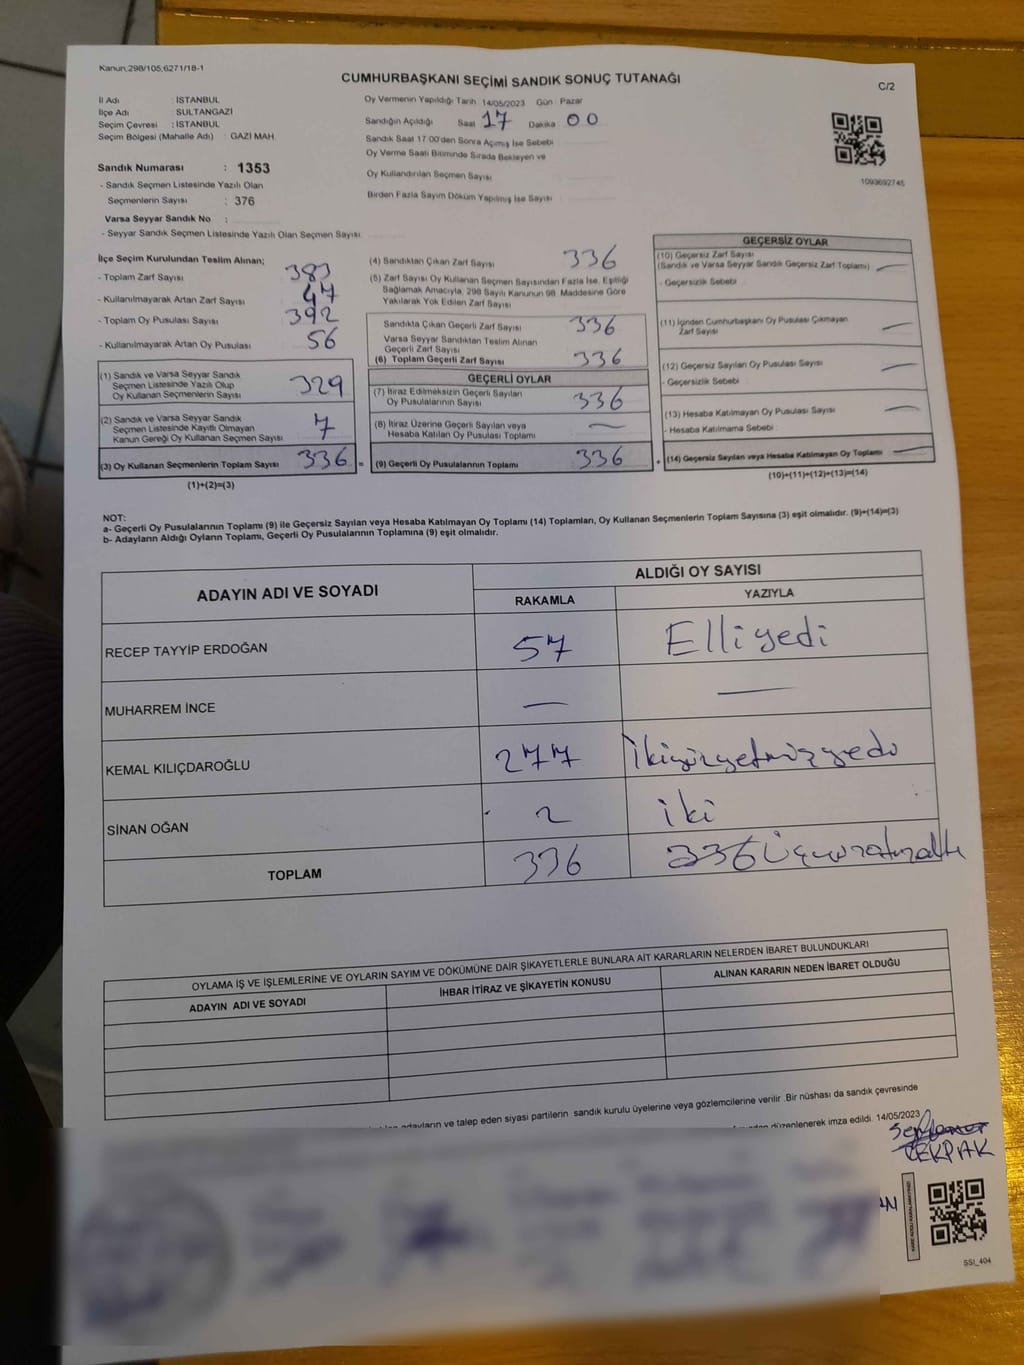 Kanun,298/105,6271/18-1
CUMHURBAŞKANI SEÇİMİ SANDIK SONUÇ TUTANAĞI
C/2
İl Adı : İSTANBUL
İlçe Adı : SULTANGAZİ
Seçim Çevresi : İSTANBUL
Seçim Bölgesi (Mahalle Adı) : GAZİ MAH.
Oy Vermenin Yapıldığı Tarih 14/05/2023 Gün : Pazar
Sandığın Açıldığı Saat 17 Dakika 00
Sandık Saat 17:00'den Sonra Açımış İse Sebebi
Oy Verme Saati Bitiminde Sırada Bekleyen ve
Oy Kullandırılan Seçmen Sayısı
Birden Fazla Sayım Döküm Yapılmış İse Sayısı
1093692745
Sandık Numarası : 1353
- Sandık Seçmen Listesinde Yazılı Olan
Seçmenlerin Sayısı : 376
Varsa Seyyar Sandık No :
- Seyyar Sandık Seçmen Listesinde Yazılı Olan Seçmen Sayısı
İlçe Seçim Kurulundan Teslim Alınan;
- Toplam Zarf Sayısı 383
- Kullanılmayarak Artan Zarf Sayısı 47
- Toplam Oy Pusulası Sayısı 392
- Kullanılmayarak Artan Oy Pusulası 56
(1) Sandık ve Varsa Seyyar Sandık
Seçmen Listesinde Yazılı Olup
Oy Kullanan Seçmenlerin Sayısı 329
(2) Sandık ve Varsa Seyyar Sandık
Seçmen Listesinde Kayıtlı Olmayan
Kanun Gereği Oy Kullanan Seçmen Sayısı 7
(3) Oy Kullanan Seçmenlerin Toplam Sayısı 336 =
(1)+(2)=(3)
(4) Sandıktan Çıkan Zarf Sayısı 336
(5) Zarf Sayısı Oy Kullanan Seçmen Sayısından Fazla İse, Eşitliği
Sağlamak Amacıyla, 298 Sayılı Kanunun 98. Maddesine Göre
Yakılarak Yok Edilen Zarf Sayısı
Sandıkta Çıkan Geçerli Zarf Sayısı 336
Varsa Seyyar Sandıktan Teslim Alınan
Geçerli Zarf Sayısı
(6) Toplam Geçerli Zarf Sayısı 336
GEÇERLİ OYLAR
(7) İtiraz Edilmeksizin Geçerli Sayılan
Oy Pusulalarının Sayısı 336
(8) İtiraz Üzerine Geçerli Sayılan veya
Hesaba Katılan Oy Pusulası Toplamı —
(9) Geçerli Oy Pusulalarının Toplamı 336 +
GEÇERSİZ OYLAR
(10) Geçersiz Zarf Sayısı
(Sandık ve Varsa Seyyar Sandık Geçersiz Zarf Toplamı) —
- Geçersizlik Sebebi :
(11) İçinden Cumhurbaşkanı Oy Pusulası Çıkmayan
Zarf Sayısı —
(12) Geçersiz Sayılan Oy Pusulası Sayısı —
- Geçersizlik Sebebi :
(13) Hesaba Katılmayan Oy Pusulası Sayısı —
- Hesaba Katılmama Sebebi :
(14) Geçersiz Sayılan veya Hesaba Katılmayan Oy Toplamı —
(10)+(11)+(12)+(13)=(14)
NOT:
a- Geçerli Oy Pusulalarının Toplamı (9) ile Geçersiz Sayılan veya Hesaba Katılmayan Oy Toplamı (14) Toplamları, Oy Kullanan Seçmenlerin Toplam Sayısına (3) eşit olmalıdır. (9)+(14)=(3)
b- Adayların Aldığı Oyların Toplamı, Geçerli Oy Pusulalarının Toplamına (9) eşit olmalıdır.
ADAYIN ADI VE SOYADI
ALDIĞI OY SAYISI
RAKAMLA YAZIYLA
RECEP TAYYİP ERDOĞAN 57 Elliyedi
MUHARREM İNCE — —
KEMAL KILIÇDAROĞLU 277 İkiyüzyetmişyedi
SİNAN OĞAN 2 iki
TOPLAM 336 336 Üçyüzotuzaltı
OYLAMA İŞ VE İŞLEMLERİNE VE OYLARIN SAYIM VE DÖKÜMÜNE DAİR ŞİKAYETLERLE BUNLARA AİT KARARLARIN NELERDEN İBARET BULUNDUKLARI
ADAYIN ADI VE SOYADI İHBAR İTİRAZ VE ŞİKAYETİN KONUSU ALINAN KARARIN NEDEN İBARET OLDUĞU
adayların ve talep eden siyasi partilerin sandık kurulu üyelerine veya gözlemcilerine verilir. Bir nüshası da sandık çevresinde
düzenlenerek imza edildi. 14/05/2023
ÇEKPAK
AN
SSİ_404